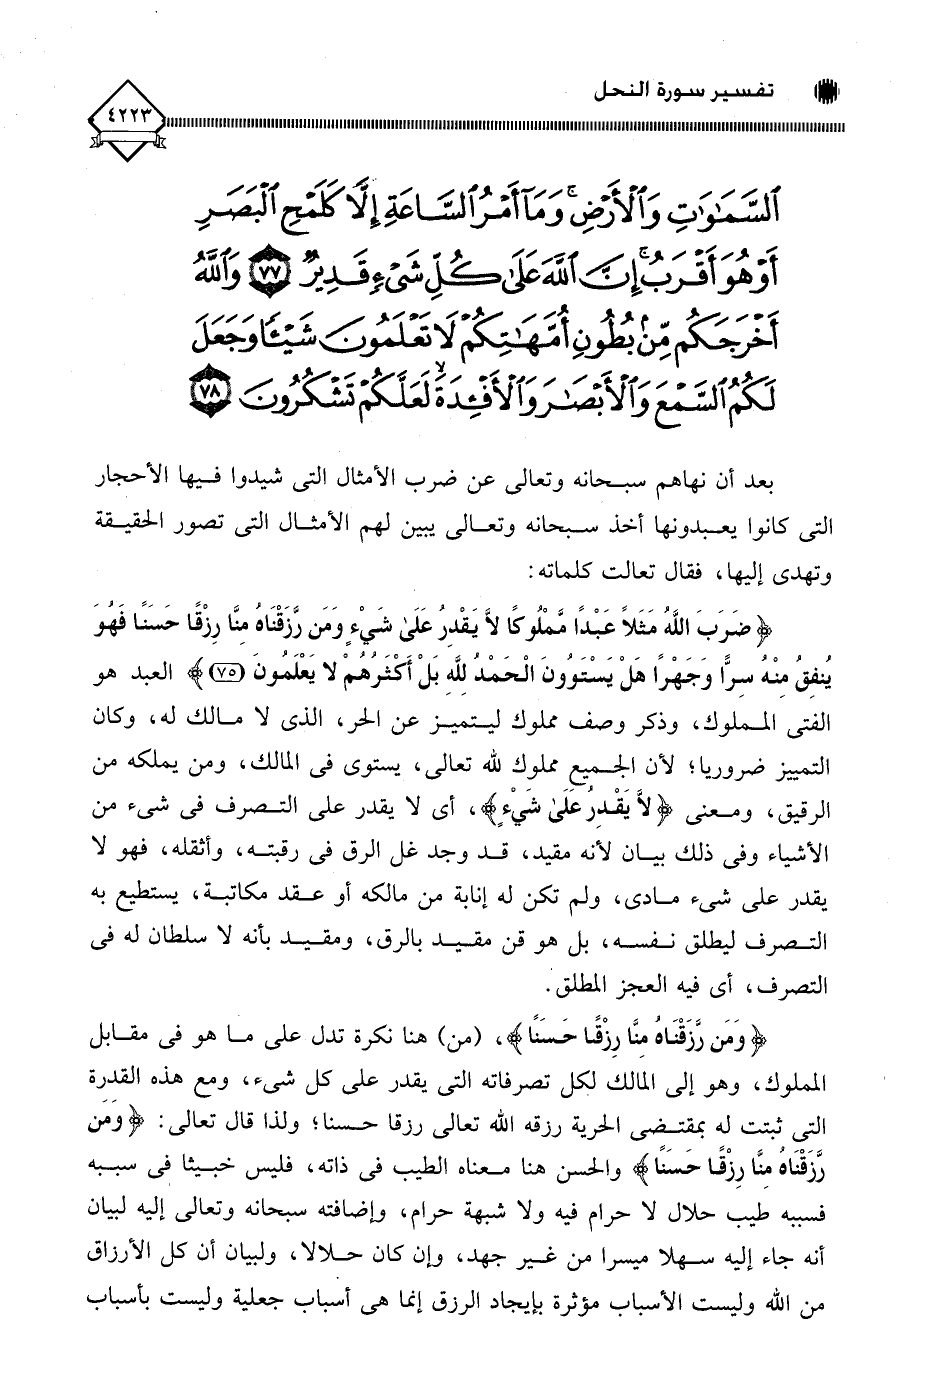 تفسير سورة النحل
٤٢٢٣
ٱلسَّمَٰوَٰتِ وَٱلْأَرْضِ ۚ وَمَآ أَمْرُ ٱلسَّاعَةِ إِلَّا كَلَمْحِ ٱلْبَصَرِ
أَوْ هُوَ أَقْرَبُ ۚ إِنَّ ٱللَّهَ عَلَىٰ كُلِّ شَىْءٍ قَدِيرٌ ٧٧ وَٱللَّهُ
أَخْرَجَكُم مِّنۢ بُطُونِ أُمَّهَٰتِكُمْ لَا تَعْلَمُونَ شَيْـًٔا وَجَعَلَ
لَكُمُ ٱلسَّمْعَ وَٱلْأَبْصَٰرَ وَٱلْأَفْـِٔدَةَ ۙ لَعَلَّكُمْ تَشْكُرُونَ ٧٨
بعد أن نهاهم سبحانه وتعالى عن ضرب الأمثال التى شيدوا فيها الأحجار
التى كانوا يعبدونها أخذ سبحانه وتعالى يبين لهم الأمثال التى تصور الحقيقة
وتهدى إليها، فقال تعالت كلماته:
﴿ضَرَبَ اللَّهُ مَثَلاً عَبْدًا مَّمْلُوكًا لاَّ يَقْدِرُ عَلَىٰ شَيْءٍ وَمَن رَّزَقْنَاهُ مِنَّا رِزْقًا حَسَنًا فَهُوَ
يُنفِقُ مِنْهُ سِرًّا وَجَهْرًا هَلْ يَسْتَوُونَ الْحَمْدُ لِلَّهِ بَلْ أَكْثَرُهُمْ لا يَعْلَمُونَ (٧٥)﴾ العبد هو
الفتى المملوك، وذكر وصف مملوك ليتميز عن الحر، الذى لا مالك له، وكان
التمييز ضروريا؛ لأن الجميع مملوك لله تعالى، يستوى فى المالك، ومن يملكه من
الرقيق، ومعنى ﴿لاَّ يَقْدِرُ عَلَىٰ شَيْءٍ﴾، أى لا يقدر على التصرف فى شىء من
الأشياء وفى ذلك بيان لأنه مقيد، قد وجد غل الرق فى رقبته، وأثقله، فهو لا
يقدر على شىء مادى، ولم تكن له إنابة من مالكه أو عقد مكاتبة، يستطيع به
التصرف ليطلق نفسه، بل هو قن مقيد بالرق، ومقيد بأنه لا سلطان له فى
التصرف، أى فيه العجز المطلق.
﴿وَمَن رَّزَقْنَاهُ مِنَّا رِزْقًا حَسَنًا﴾، (من) هنا نكرة تدل على ما هو فى مقابل
المملوك، وهو إلى المالك لكل تصرفاته التى يقدر على كل شىء، ومع هذه القدرة
التى ثبتت له بمقتضى الحرية رزقه الله تعالى رزقا حسنا؛ ولذا قال تعالى: ﴿وَمَن
رَّزَقْنَاهُ مِنَّا رِزْقًا حَسَنًا﴾ والحسن هنا معناه الطيب فى ذاته، فليس خبيثا فى سببه
فسببه طيب حلال لا حرام فيه ولا شبهة حرام، وإضافته سبحانه وتعالى إليه لبيان
أنه جاء إليه سهلا ميسرا من غير جهد، وإن كان حلالا، ولبيان أن كل الأرزاق
من الله وليست الأسباب مؤثرة بإيجاد الرزق إنما هى أسباب جعلية وليست بأسباب